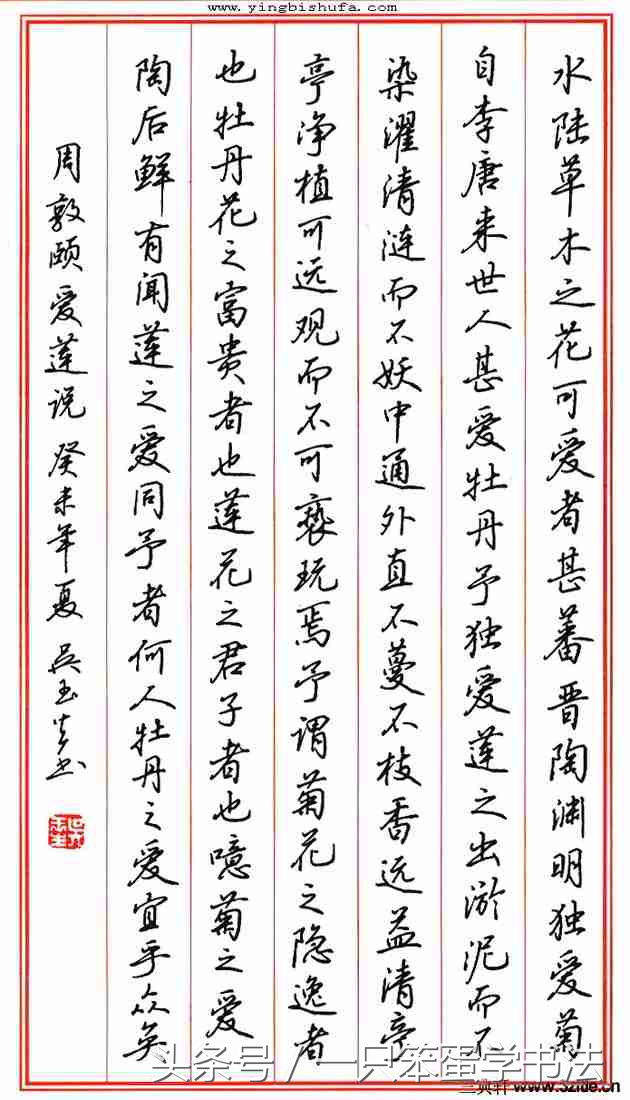 www.yingbishufa.com
水陆草木之花可爱者甚蕃晋陶渊明独爱菊
自李唐来世人甚爱牡丹予独爱莲之出淤泥而不
染濯清涟而不妖中通外直不蔓不枝香远益清亭
亭净植可远观而不可亵玩焉予谓菊花之隐逸者
也牡丹花之富贵者也莲花之君子者也噫菊之爱
陶后鲜有闻莲之爱同予者何人牡丹之爱宜乎众矣
周敦颐爱莲说 癸未年夏 吴玉生书
头条号 / 一只笨蛋学书法
三典轩 www.32ide.cn